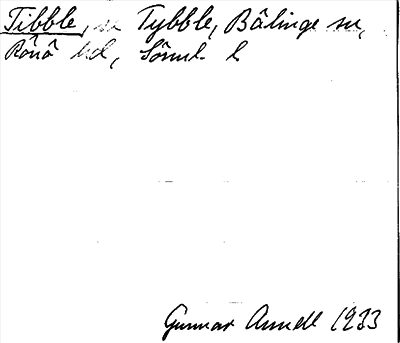 Tibble, se Tybble, Bälinge sn,
Rönö hd, Sörml. l
Gunnar Arnell 1933